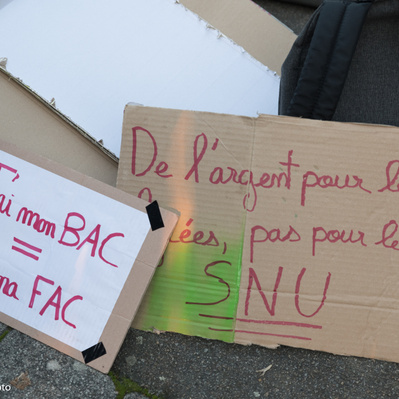 J'ai mon BAC
=
ma FAC
De l'argent pour le
ées, pas pour le
SNU
oto